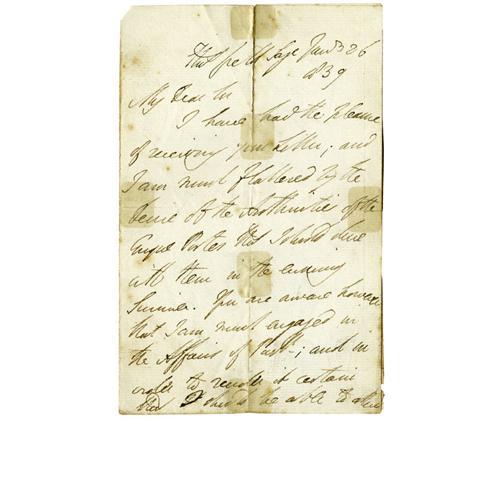 Jany 26
1839
My Dear Sir
I have had the pleasure
of receiving your Letter; and
I am much flattered by the
desire of the Authorities of the
Cinque Ports that I should dine
with them in the ensuing
Summer. You are aware however
that I am much engaged in
the Affairs of Parlt; and in
order to render it certain
that I should be able to attend